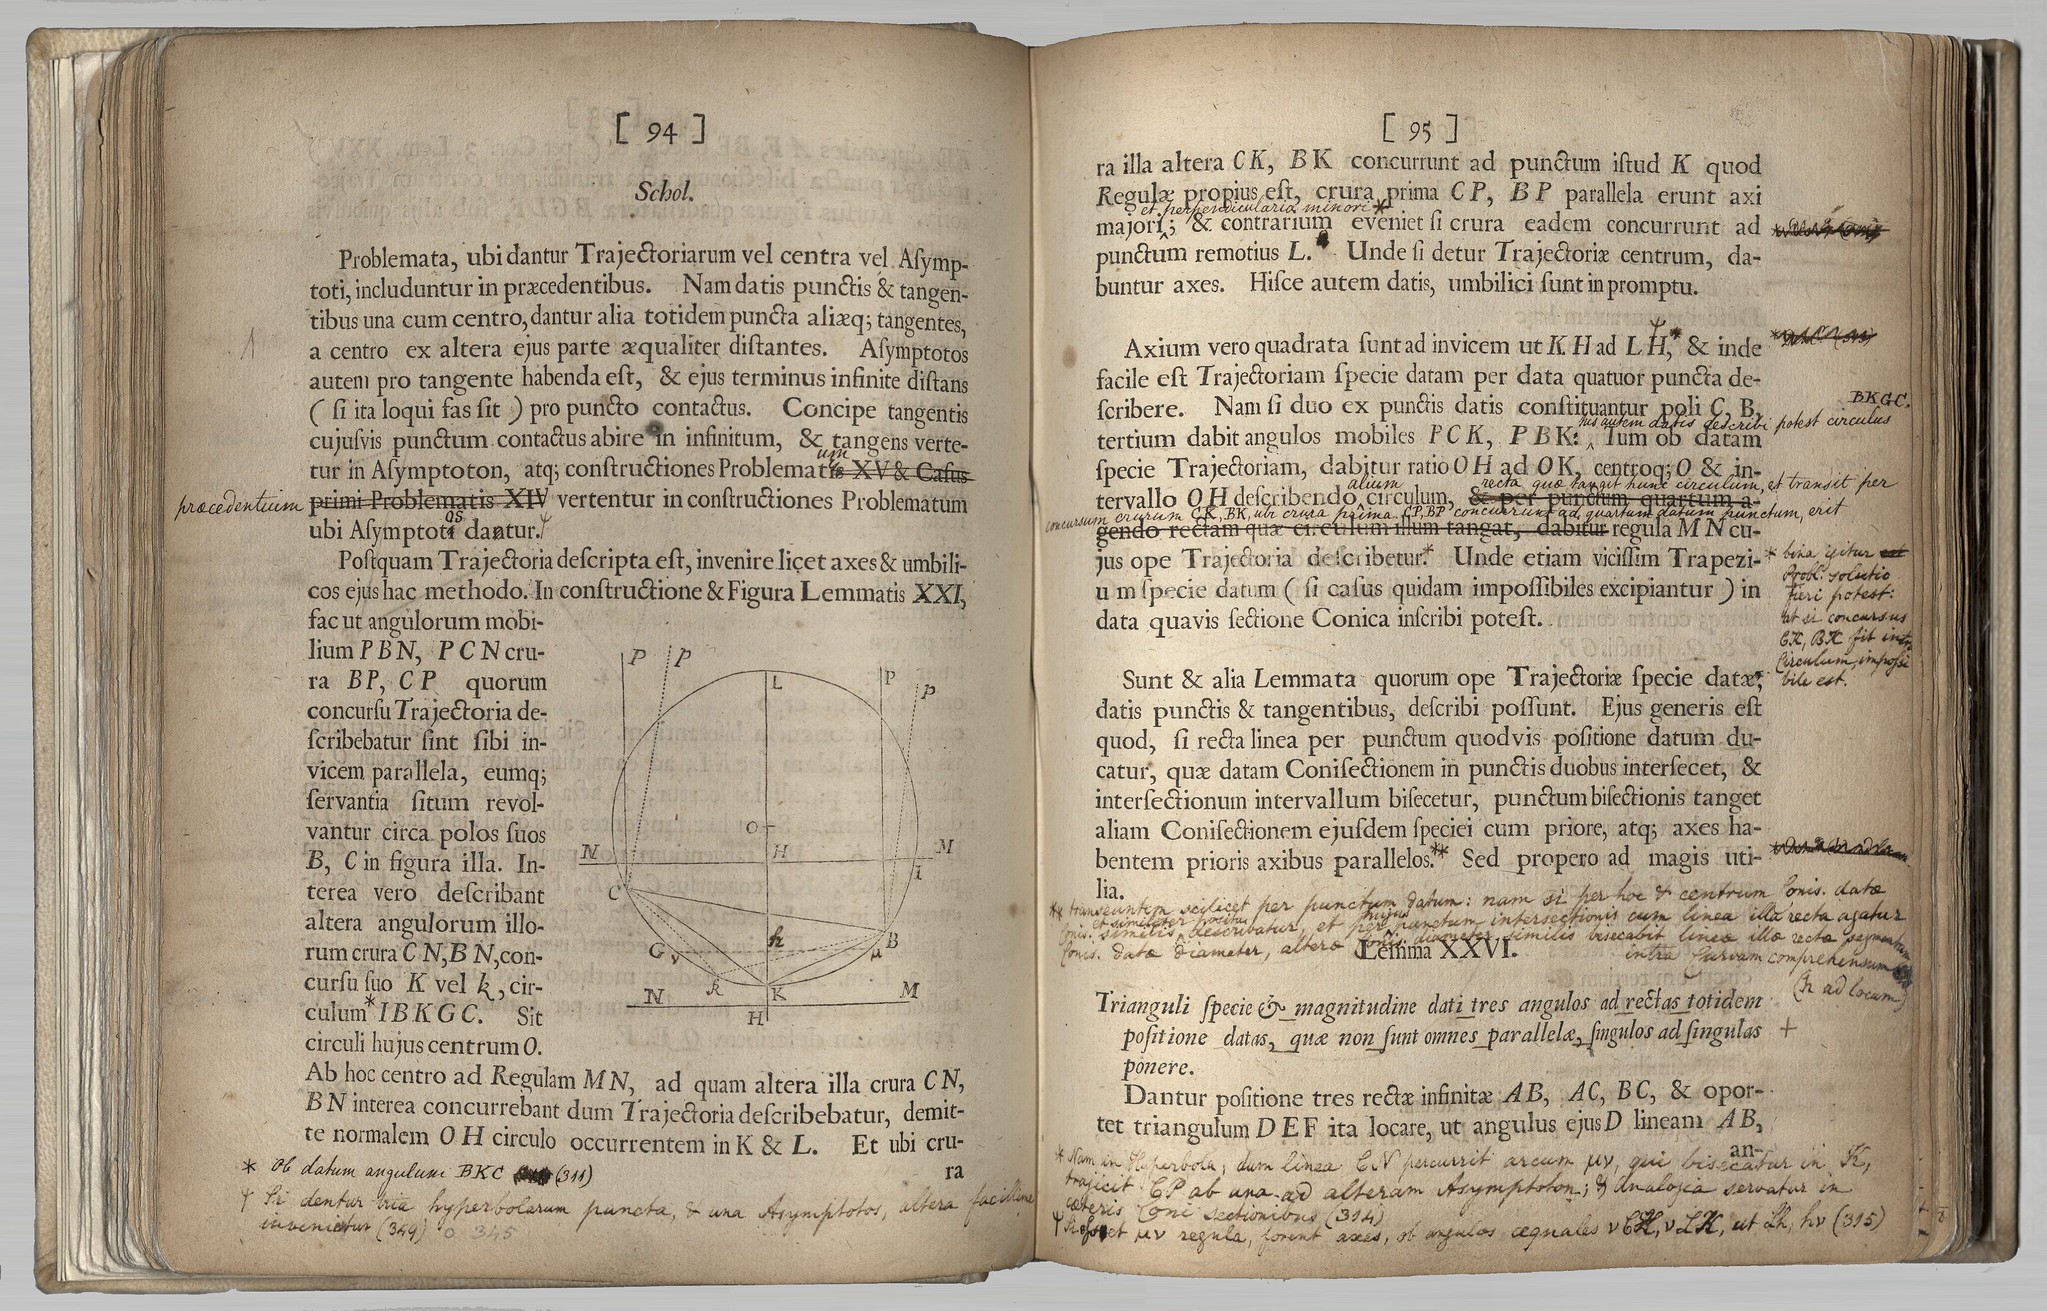 [ 94 ]
Schol.
Problemata, ubi dantur Trajectoriarum vel centra vel Aſymp-
toti, includuntur in præcedentibus. Nam datis punctis & tangen-
tibus una cum centro, dantur alia totidem puncta aliæq; tangentes,
a centro ex altera ejus parte æqualiter diſtantes. Aſymptotos
autem pro tangente habenda eſt, & ejus terminus infinite diſtans
( ſi ita loqui fas ſit ) pro puncto contactus. Concipe tangentis
cujuſvis punctum contactus abire in infinitum, & tangens verte-
um
tur in Aſymptoton, atq; conſtructiones Problematis XV & Caſus
præcedentium primi Problematis XIV vertentur in conſtructiones Problematum
os
ubi Aſymptoti dantur.
Poſtquam Trajectoria deſcripta eſt, invenire licet axes & umbili-
cos ejus hac methodo. In conſtructione & Figura Lemmatis XXI,
fac ut angulorum mobi-
lium PBN, PCN cru-
ra BP, CP quorum
concurſu Trajectoria de-
ſcribebatur ſint ſibi in-
vicem parallela, eumq;
ſervantia ſitum revol-
vantur circa polos ſuos
B, C in figura illa. In-
terea vero deſcribant
altera angulorum illo-
rum crura CN, BN, con-
curſu ſuo K vel k, cir-
culum * IBKGC. Sit
circuli hujus centrum O.
P p P p
L
O
N H M
I
C
G ν h μ B
k K
N M
H
Ab hoc centro ad Regulam MN, ad quam altera illa crura CN,
BN interea concurrebant dum Trajectoria deſcribebatur, demit-
te normalem OH circulo occurrentem in K & L. Et ubi cru-
ra
* Ob datum angulum BKC (311)
Si dentur tria hyperbolarum puncta, & una Asymptotos, altera facillime
invenietur (349) 345
[ 95 ]
ra illa altera CK, BK concurrunt ad punctum iſtud K quod
Regulæ propius eſt, crura prima CP, BP parallela erunt axi
et perpendicularia minori *
majori; & contrarium eveniet ſi crura eadem concurrunt ad
punctum remotius L. Unde ſi detur Trajectoriæ centrum, da-
buntur axes. Hiſce autem datis, umbilici ſunt in promptu.
Axium vero quadrata ſunt ad invicem ut KH ad LH, & inde
facile eſt Trajectoriam ſpecie datam per data quatuor puncta de-
BKGC.
ſcribere. Nam ſi duo ex punctis datis conſtituantur poli C, B,
his autem datis describi potest circulus
tertium dabit angulos mobiles PCK, PBK: Tum ob datam
ſpecie Trajectoriam, dabitur ratio OH ad OK, centroq; O & in-
alium recta quæ tangit hunc circulum, et transit per
tervallo OH deſcribendo circulum, & per punctum quartum a-
concursum crurum CK, BK, ubi crura prima CP, BP concurrunt ad quartum datum punctum, erit
gendo rectam quæ circulum illum tangat, dabitur regula MN cu-
jus ope Trajectoria deſcribetur.* Unde etiam viciſſim Trapezi-
um ſpecie datum ( ſi caſus quidam impoſſibiles excipiantur ) in
data quavis ſectione Conica inſcribi poteſt.
* bina igitur
Probl. solutio
fieri potest:
at si concursus
CK, BK fit intra
Circulum, impossi
bile est.
Sunt & alia Lemmata quorum ope Trajectoriæ ſpecie datæ,
datis punctis & tangentibus, deſcribi poſſunt. Ejus generis eſt
quod, ſi recta linea per punctum quodvis poſitione datum du-
catur, quæ datam Coniſectionem in punctis duobus interſecet, &
interſectionum intervallum biſecetur, punctum biſectionis tanget
aliam Coniſectionem ejuſdem ſpeciei cum priore, atq; axes ha-
bentem prioris axibus parallelos.** Sed propero ad magis uti-
lia.
** transeuntem scilicet per punctum datum: nam si per hoc & centrum Conis. datæ
Conis. similis describatur, et per punctum intersectionis cum linea illa recta agatur
Conis. datæ diameter, altera similis bisecabit lineæ illæ rectæ segmentum
intra Curvam comprehensum
(h ad locum)
Lemma XXVI.
Trianguli ſpecie & magnitudine dati tres angulos ad rectas totidem
poſitione datas, quæ non ſunt omnes parallelæ, ſingulos ad ſingulas +
ponere.
Dantur poſitione tres rectæ infinitæ AB, AC, BC, & opor-
tet triangulum DEF ita locare, ut angulus ejus D lineam AB,
an-
* Nam in Hyperbola, dum linea CN percurrit arcum μν, qui bisecatur in K,
trajicit CP ab una ad alteram Asymptoton; & analogia servatur in
cæteris Coni sectionibus (314)
Si esset μν regula, forent axes, ob angulos æquales νCK, νLK, ut Lh, hν (315)